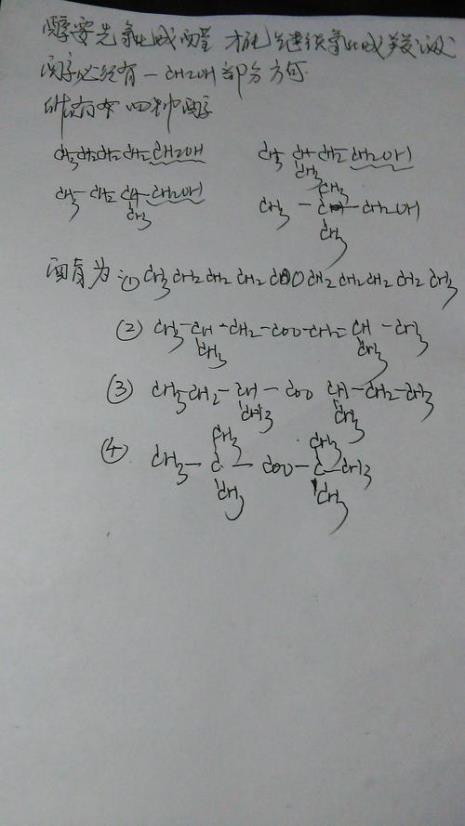 醇要先氧化成醛 才能继续氧化成羧酸
醇必须有 -CH2OH 部分方可
所以有 四种醇
CH3CH2CH2CH2CH2OH CH3 CH CH2 CH2OH
CH3
CH3- CH2 CH-CH2OH
CH3
CH3
CH3 - C - CH2OH
CH3
酯有为:① CH3CH2CH2CH2COOCH2CH2CH2CH2CH3
② CH3-CH-CH2-COO-CH2-CH-CH3
CH3 CH3
③ CH3CH2-CH-COO CH-CH2-CH3
CH3 CH3
CH3 CH3
④ CH3-C-COO-C-CH3
CH3 CH3